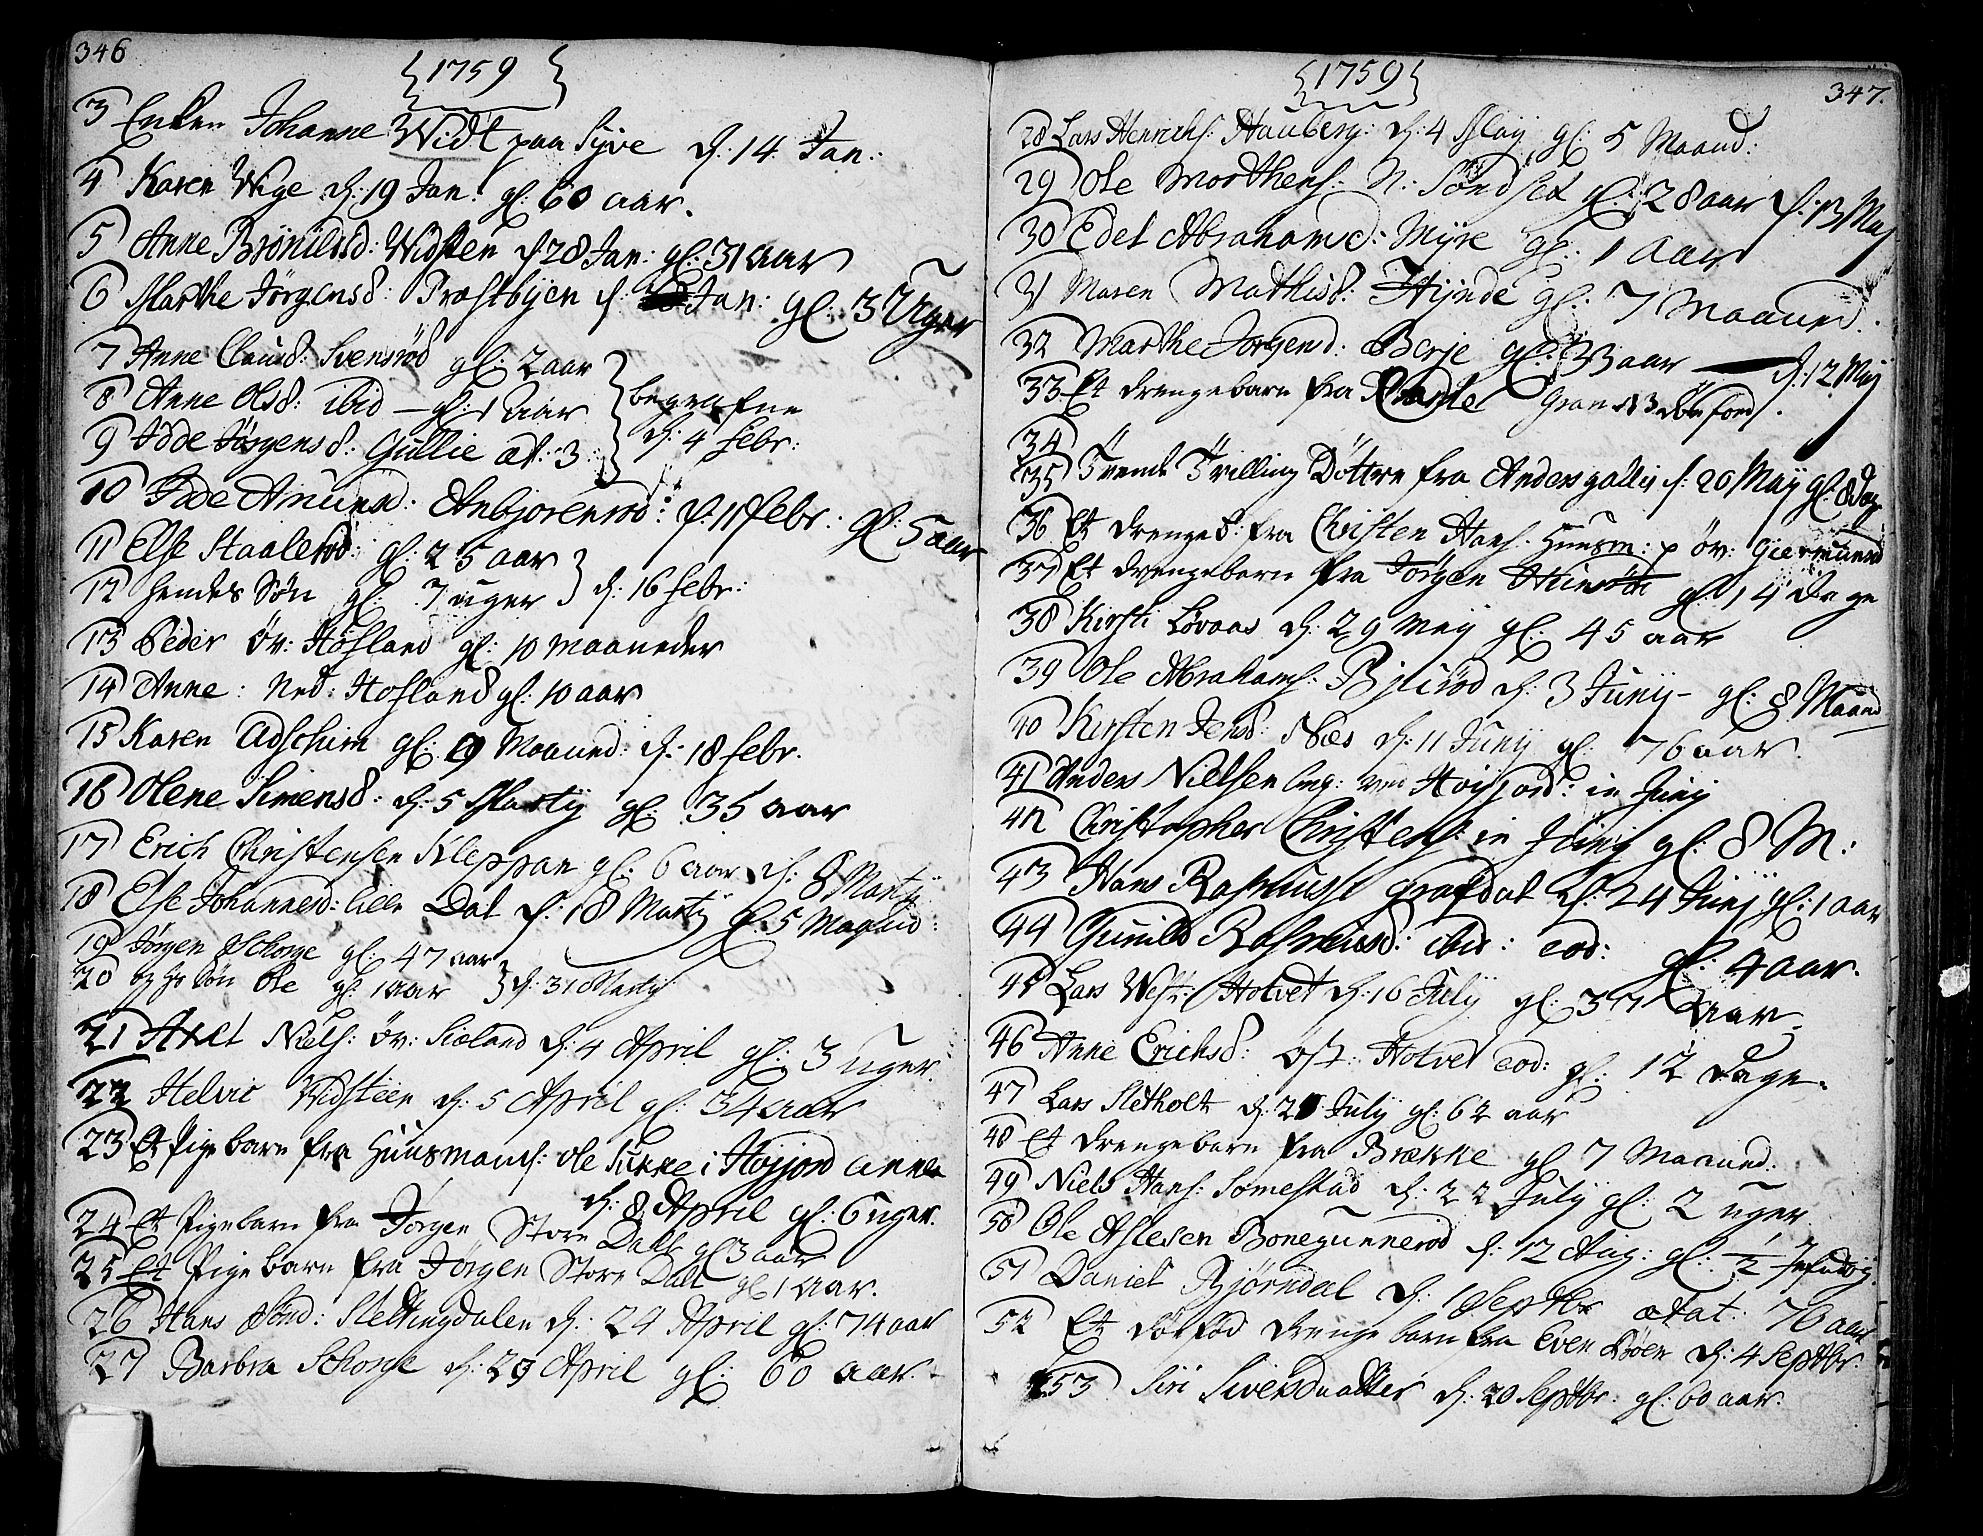 346
{1759}
3 Enken Johanne Widt paa Syve d: 14 Jan:
4 Karen Wege d: 19 Jan: gl: 60 aar.
5 Anne Brønilsd: Widsten d 28 Jan: gl: 31 aar
6 Marthe Jørgensd: Præstbyen d: Jan: gl: 3 Uger
7 Anne Clausd: Svensrød gl: 2 aar
8 Anne Olsd: ibid — gl: 1 aar
9 Adde Jørgensd: Gullie æt: 3
begrafne
d: 4 febr:
10 Inde Amunsd: Anbjørenrød: d: 11 febr: gl: 5 aar
11 Else Staalerød: gl: 25 aar
12 hendes Søn gl: 7 uger } d: 16 febr:
13 Peder Øv: Hofland gl: 10 maaneder
14 Anne: Ned: Hofland gl: 10 aar
15 Karen Adschim gl: 9 Maaned: d: 18 febr.
16 Olene Simensd: d: 5 Marty gl: 35 aar
17 Erich Christensen Kleppan gl: 6 aar d: 8 Marty
18 Else Johannesd: lille Dal d: 18 Marty gl: 5 Maaned:
19 Jørgen Schorge gl: 47 aar
20 og hs Søn Ole gl: 1 aar } d: 31 Marty
21 Axel Niels: Øv: Sioland d: 4 April gl: 3 uger.
22 Helvic Widsteen d: 5 April gl: 34 aar
23 Et Pige barn fra Huusmand: Ole Sukke i Høyjord annex
d: 8 April gl: 6 uger.
24 Et Pigebarn fra Jørgen Store Dall gl 3 aar
25 Et Pige barn fra Jørgen Store Dall gl 1 aar.
26 Hans Sønd: Slettingdalen d: 24 April gl: 74 aar
27 Barbra Schorge d: 29 April gl: 60 aar.
347.
{1759}
28 Lars Henrichs: Hauberg: d: 4 May gl: 5 Maand:
29 Ole Morthens: N: Søndset gl: 28 aar d: 13 Maj
30 Edel Abrahamsd: Myre gl: 1 aar
31 Maren Mathisd: Hynde gl: 7 Maaned.
32 Marthe Jørgensd: Berje gl: 33 aar — d: 12 Maj
33 Et drengebarn fra Gran
34
35 Trende Trilling Døttre fra Anders gallis d: 20 Maij gl: 8 dag
36 Et drengeb: fra Christen Hans: Huusm: p øv: Giermund
37 Et drengebarn fra Jørgen gl: 14 dage
38 Kirsti Løvaas d: 29 Maij gl: 45 aar
39 Ole Abrahams: Bjuerød d: 3 Junij - gl: 8 Maaned
40 Kirsten Jensd: Næs d: 11 Junij gl: 76 aar.
41 Anders Nielsen lmg: ved Høyjord: in Junij
42 Christopher Christens: in Junij gl: 8 M:
43 Hans Rasmuss: grafdal d: 24 Junij gl: 1 aar
44 Gunild Rasmusd: ibid: eod: gl: 4 aar.
45 Lars West: Holvet d: 16 July gl: 37 aar
46 Anne Erichsd: Øst: Holvet eod: gl: 12 dage.
47 Lars Sletholt d: 21 July gl: 62 aar
48 Et drengebarn fra Brække gl 7 Maaned.
49 Niels Hans: Somestad d: 22 July gl: 2 uger
50 Ole Aslesen Bonegunnerød d: 12 Aug: gl: 1/2
51 Daniel Bjørndal d: 1 Septbr ætat: 76 aar
52 Et dødfød drenge barn fra Even Løøen d: 4 Septbr.
53 Siri Siversdaatter d: 20 Septbr: gl: 60 aar.